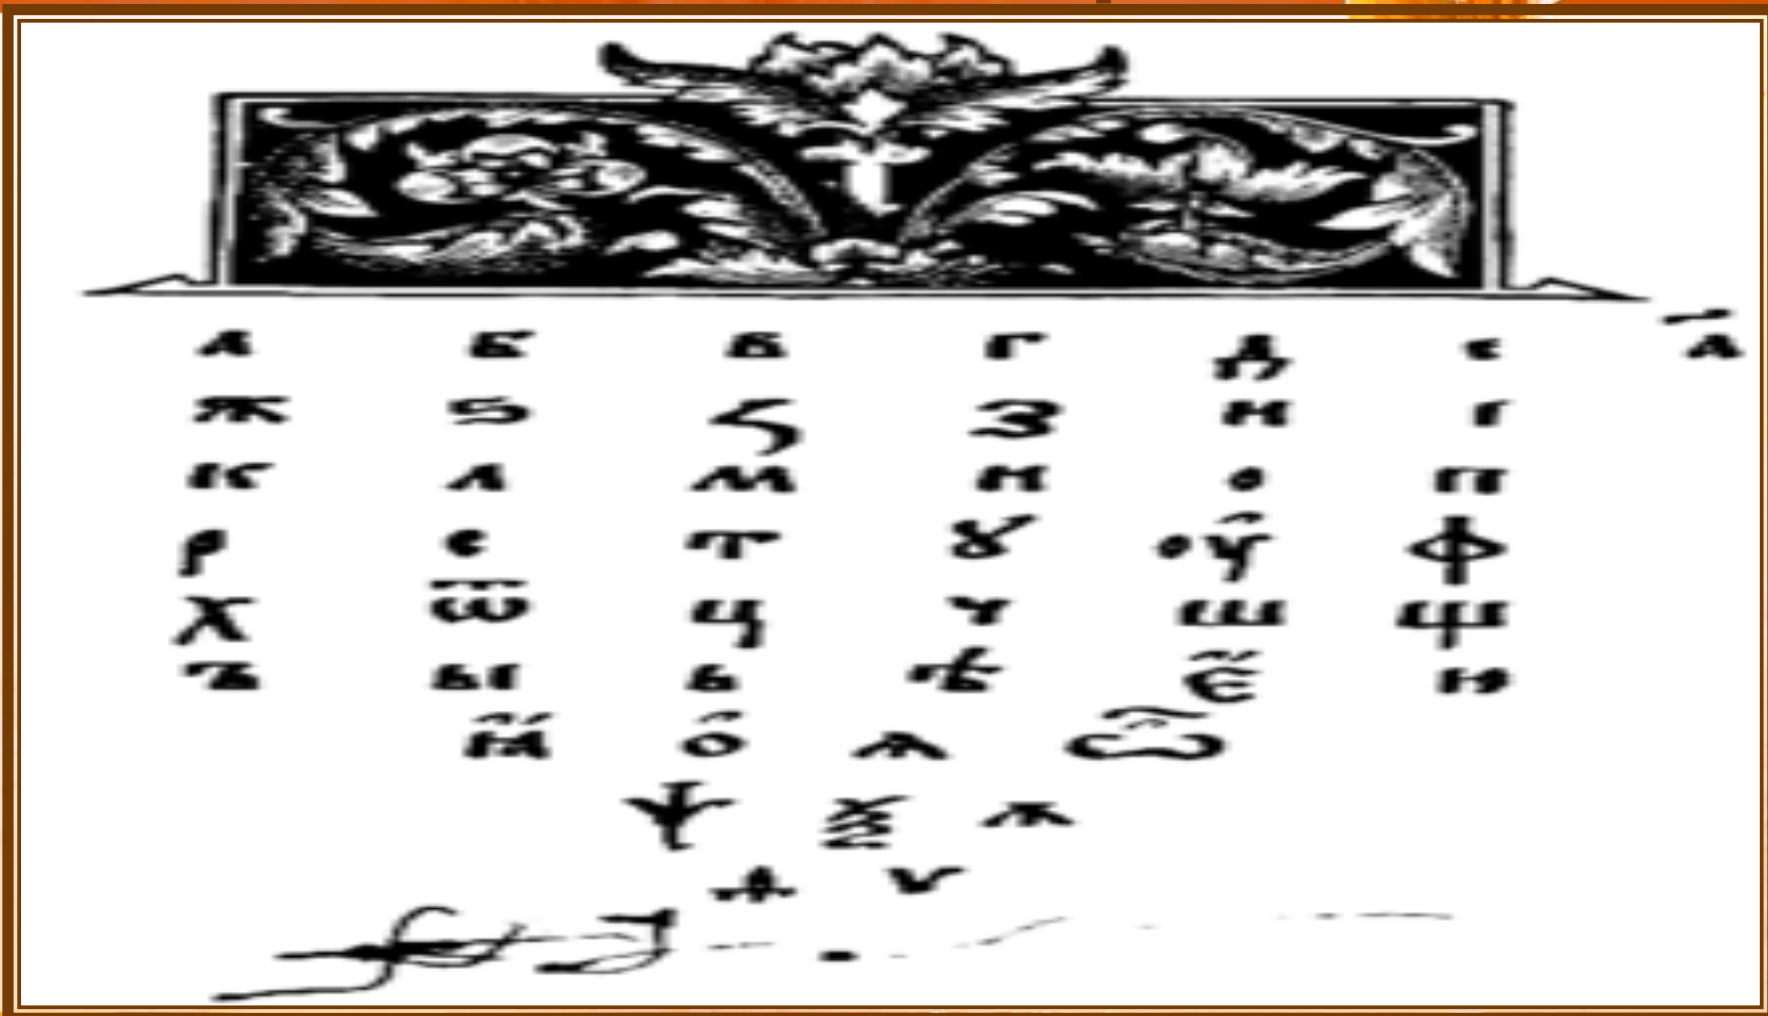 а б в г д е а҃
ж ѕ ꙁ з и ї
к л м н о п
р с т ꙋ оу̑ ф
х ѿ ц ч ш щ
ъ ы ь ѣ є̃ ю
о̑ ѧ ѽ
ѱ ѯ ѧ
ѵ